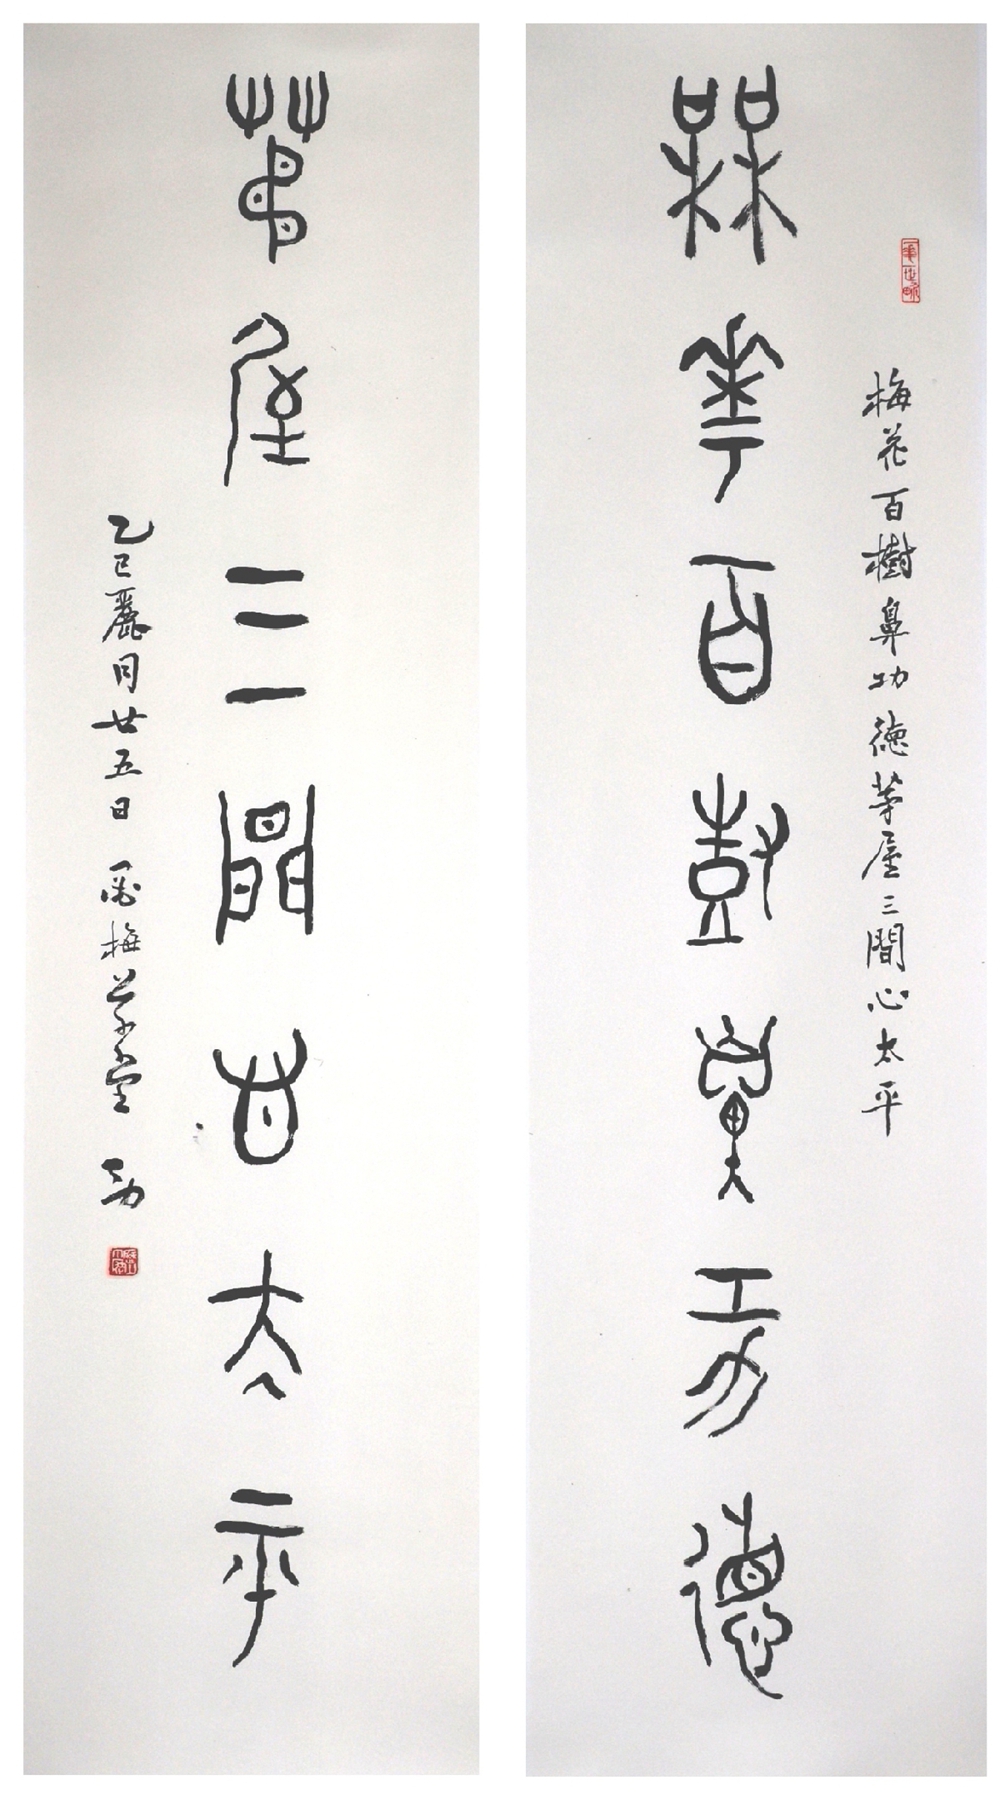 梅花百樹鼻功德茅屋三間心太平
槑華百尌鼻功德
茅屋三間心太平
乙巳麗月廿五日 梅草堂